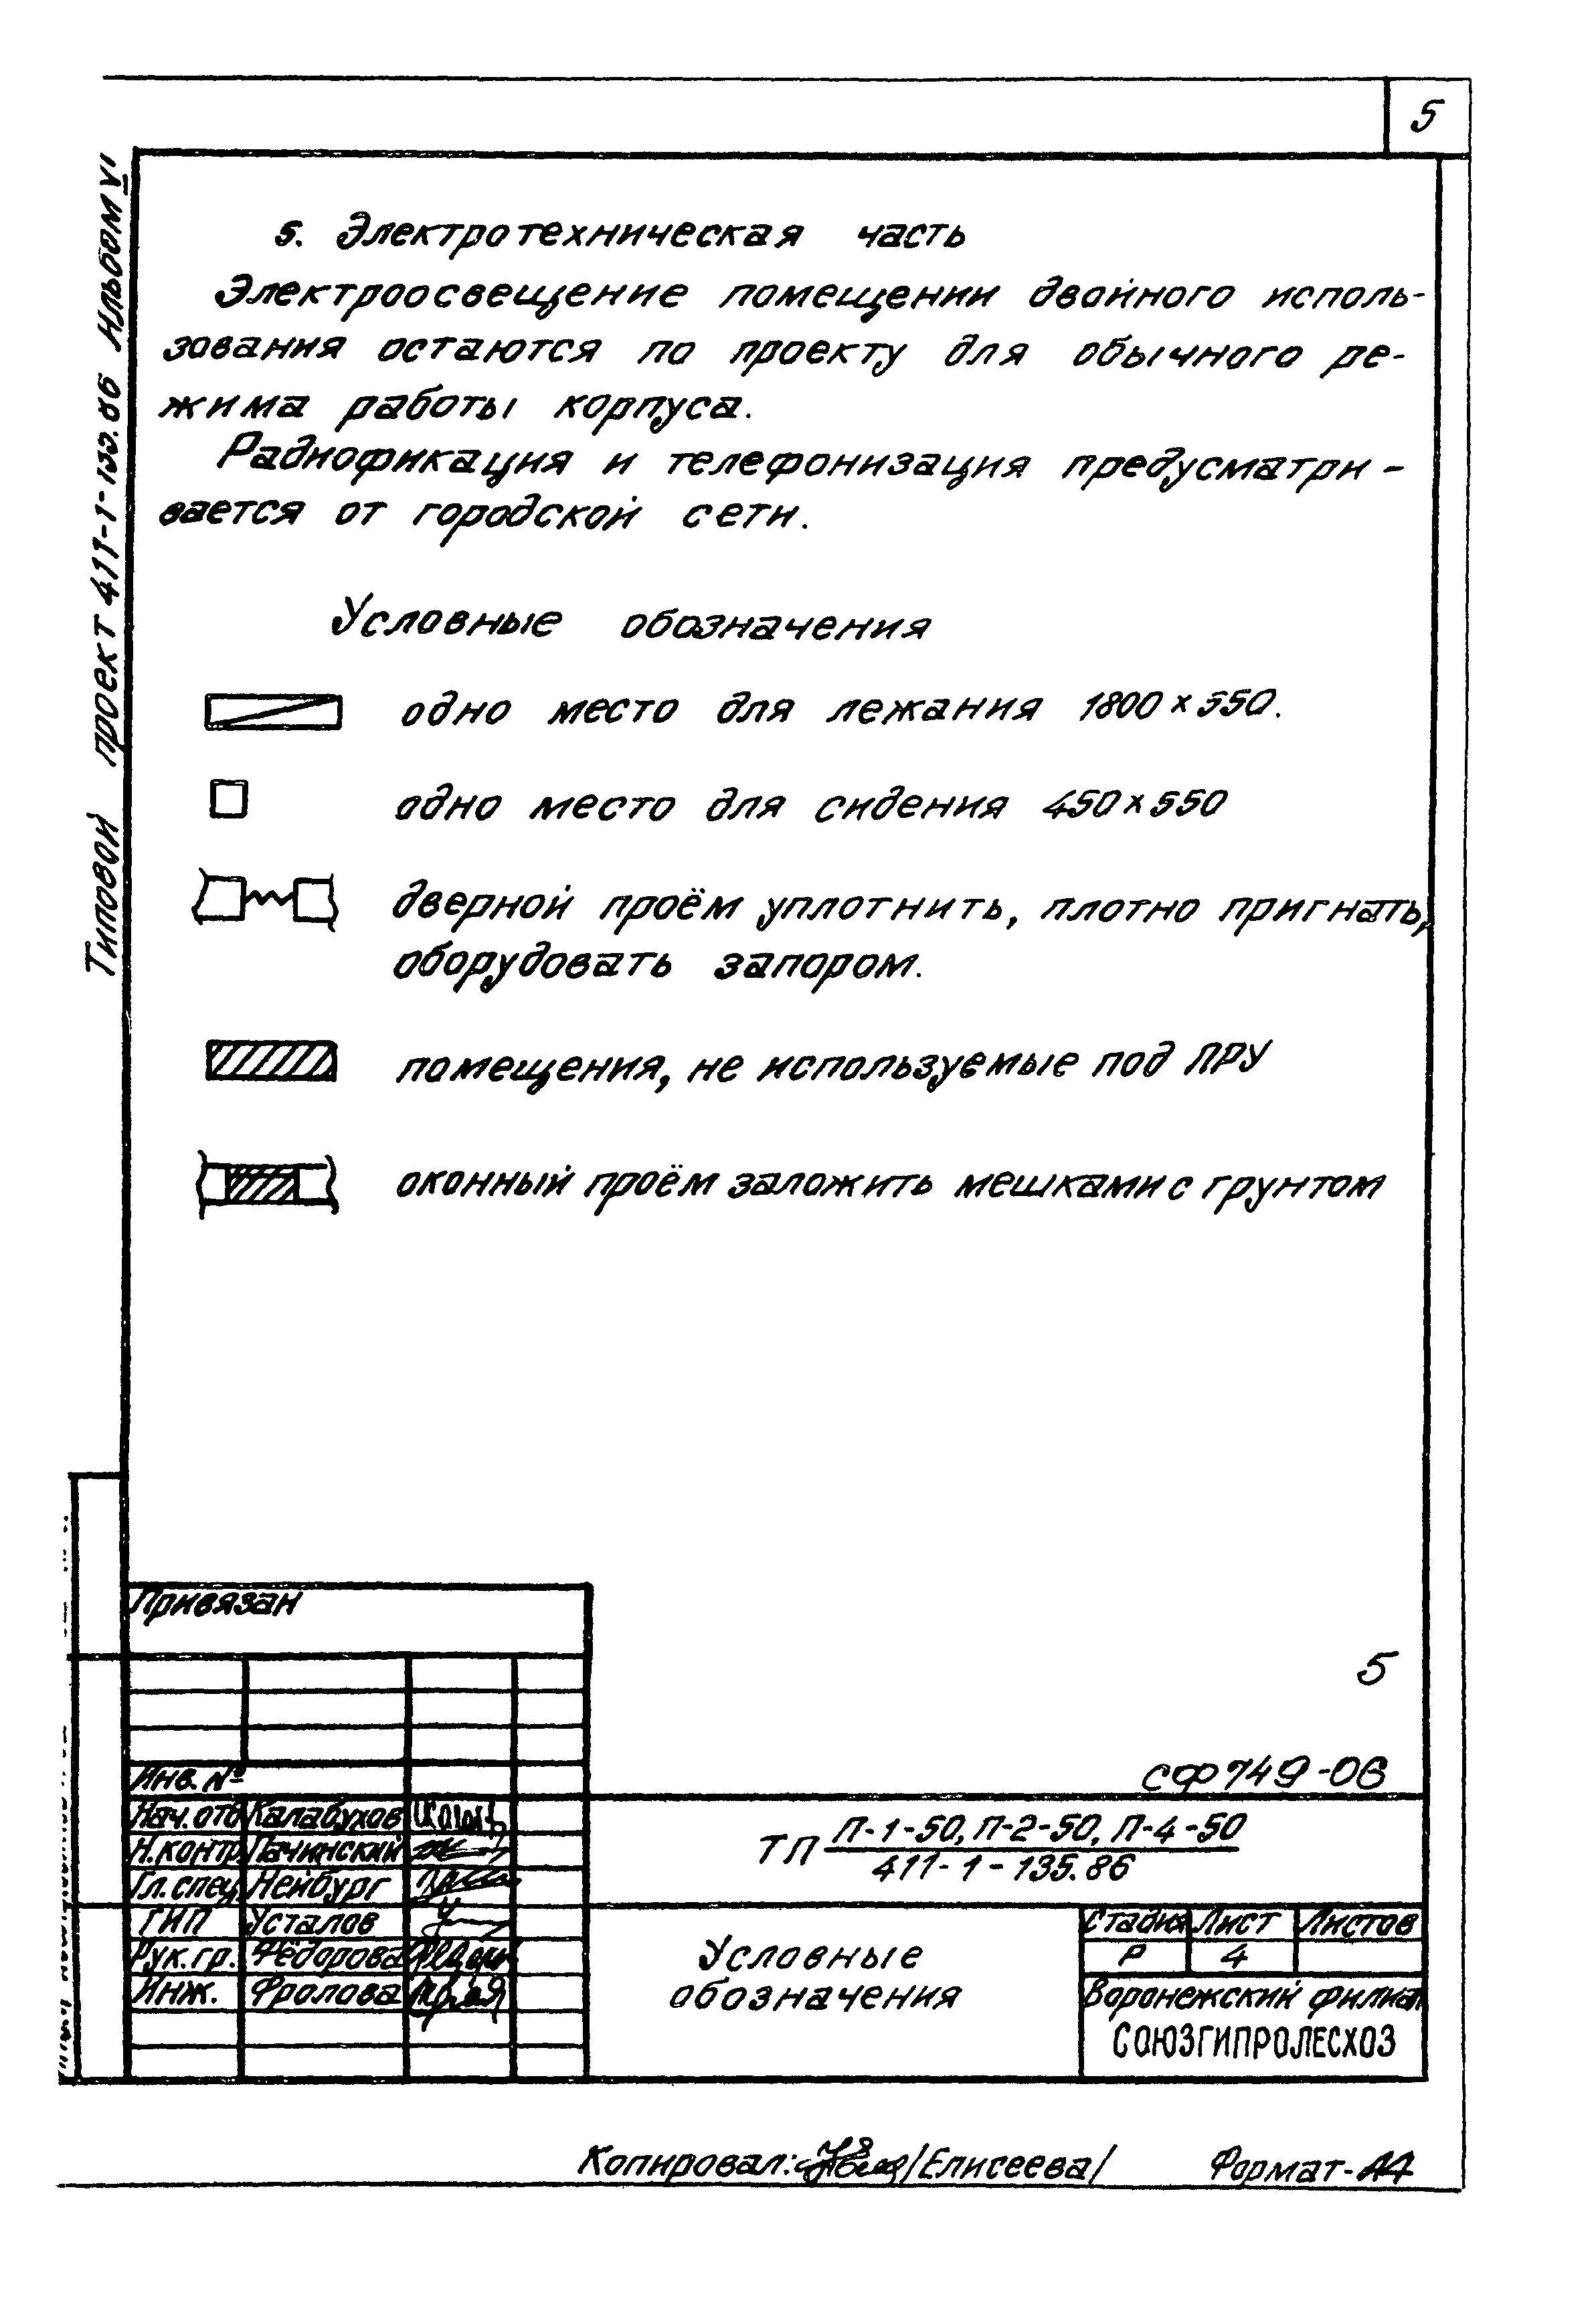 5
Типовой проект 411-1-135.86 Альбом VI
5. Электротехническая часть
Электроосвещение помещении двойного исполь-
зования остаются по проекту для обычного ре-
жима работы корпуса.
Радиофикация и телефонизация предусматри-
вается от городской сети.
Условные обозначения
одно место для лежания 1800×550.
одно место для сидения 450×550
дверной проём уплотнить, плотно пригнать,
оборудовать запором.
помещения, не используемые под ПРУ
оконный проём заложить мешками с грунтом
Привязан
5
Инв. №
СФ 749-06
Нач. отд Калабухов
Н.контр. Пачинский
Гл.спец Нейбург
ГИП Усталов
Рук.гр. Фёдорова
Инж. Фролова
ТП П-1-50, П-2-50, П-4-50
411-1-135.86
Условные
обозначения
Стадия Лист Листов
Р 4
Воронежский филиал
СОЮЗГИПРОЛЕСХОЗ
Копировал: /Елисеева/ Формат-А4